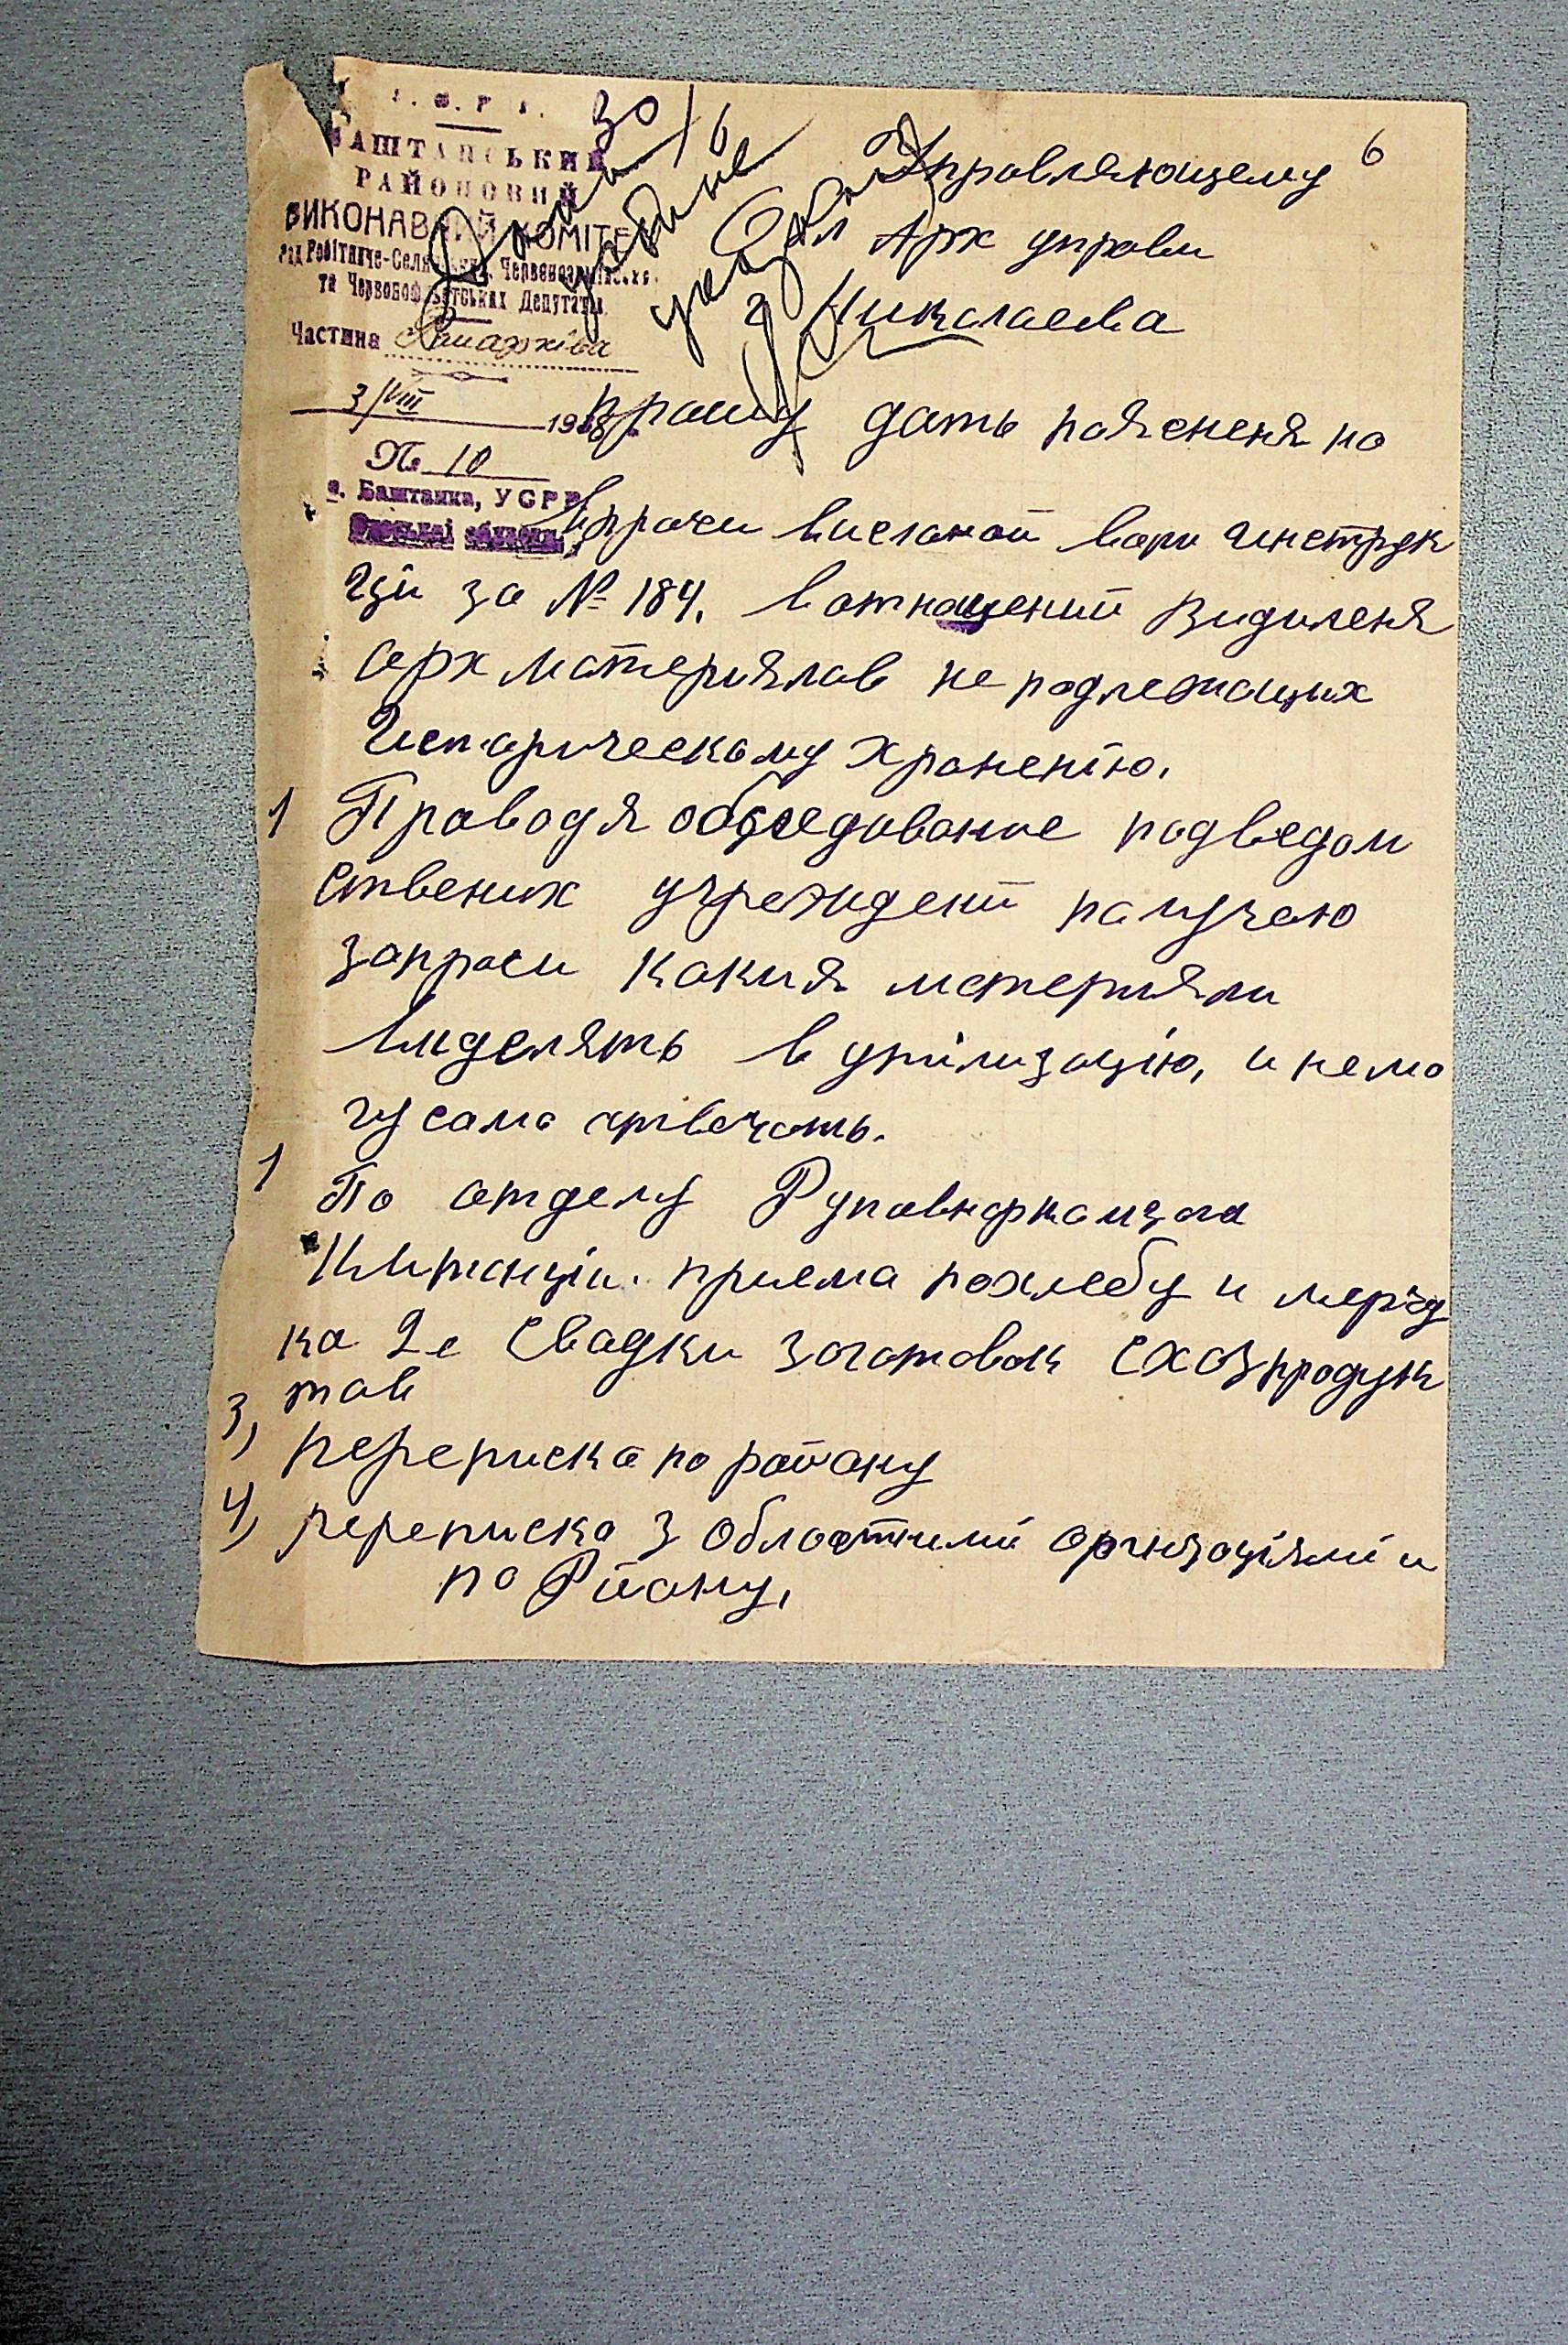 БАШТАНСЬКИЙ
РАЙОНОВИЙ
ВИКОНАВЧИЙ КОМІТЕТ
Рад Робітниче-Селянських, Червоноармійських
та Червонофлотських Депутатів
Частина
3/VIII 1938
№ 10
с. Баштанка, УСРР
Одеської області
30/6
6
Управляющему
Обл Арх управи
г Николаева
Прошу дать пояененя по
впрочи висланой вами инструк
ций за № 184. в отношений видиленя
арх материялов не подлежащих
Историческому хранению.
1 Праводя обследование подведом
ствених учреждений палучаю
запроси какия материяли
виделять в утилизацію, и немо
гу сама отвечать.
1 По отделу Рупавнаркомзага
Квитанціи. приема похлебу и
ка 2е Свадки заготовок схозпродук
тов
3, переписка по району
4, переписка з областними
по Району.